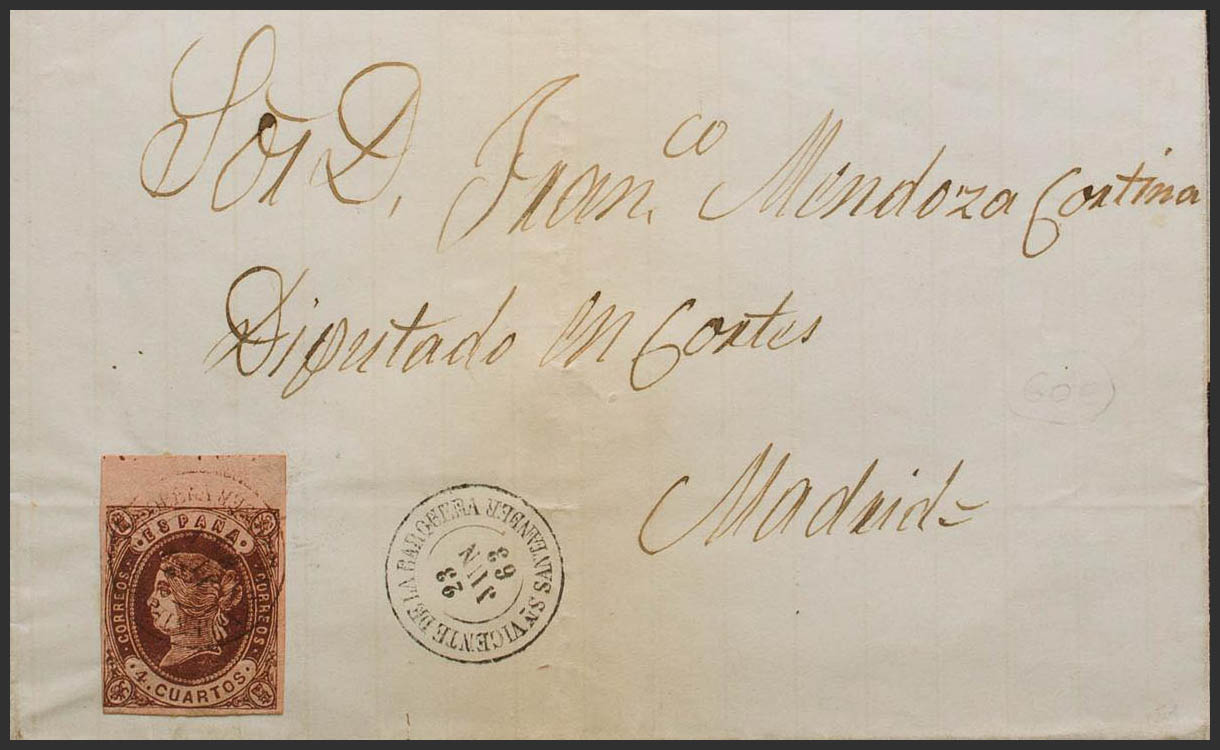 Sor D. Fran.co Mendoza Cortina
Diputado en Cortes
Madrid
ESPAÑA
CORREOS.
CORREOS.
4. CUARTOS
Sn VICENTE DE LA BARQUERA
SANTANDER
23
JUN
63